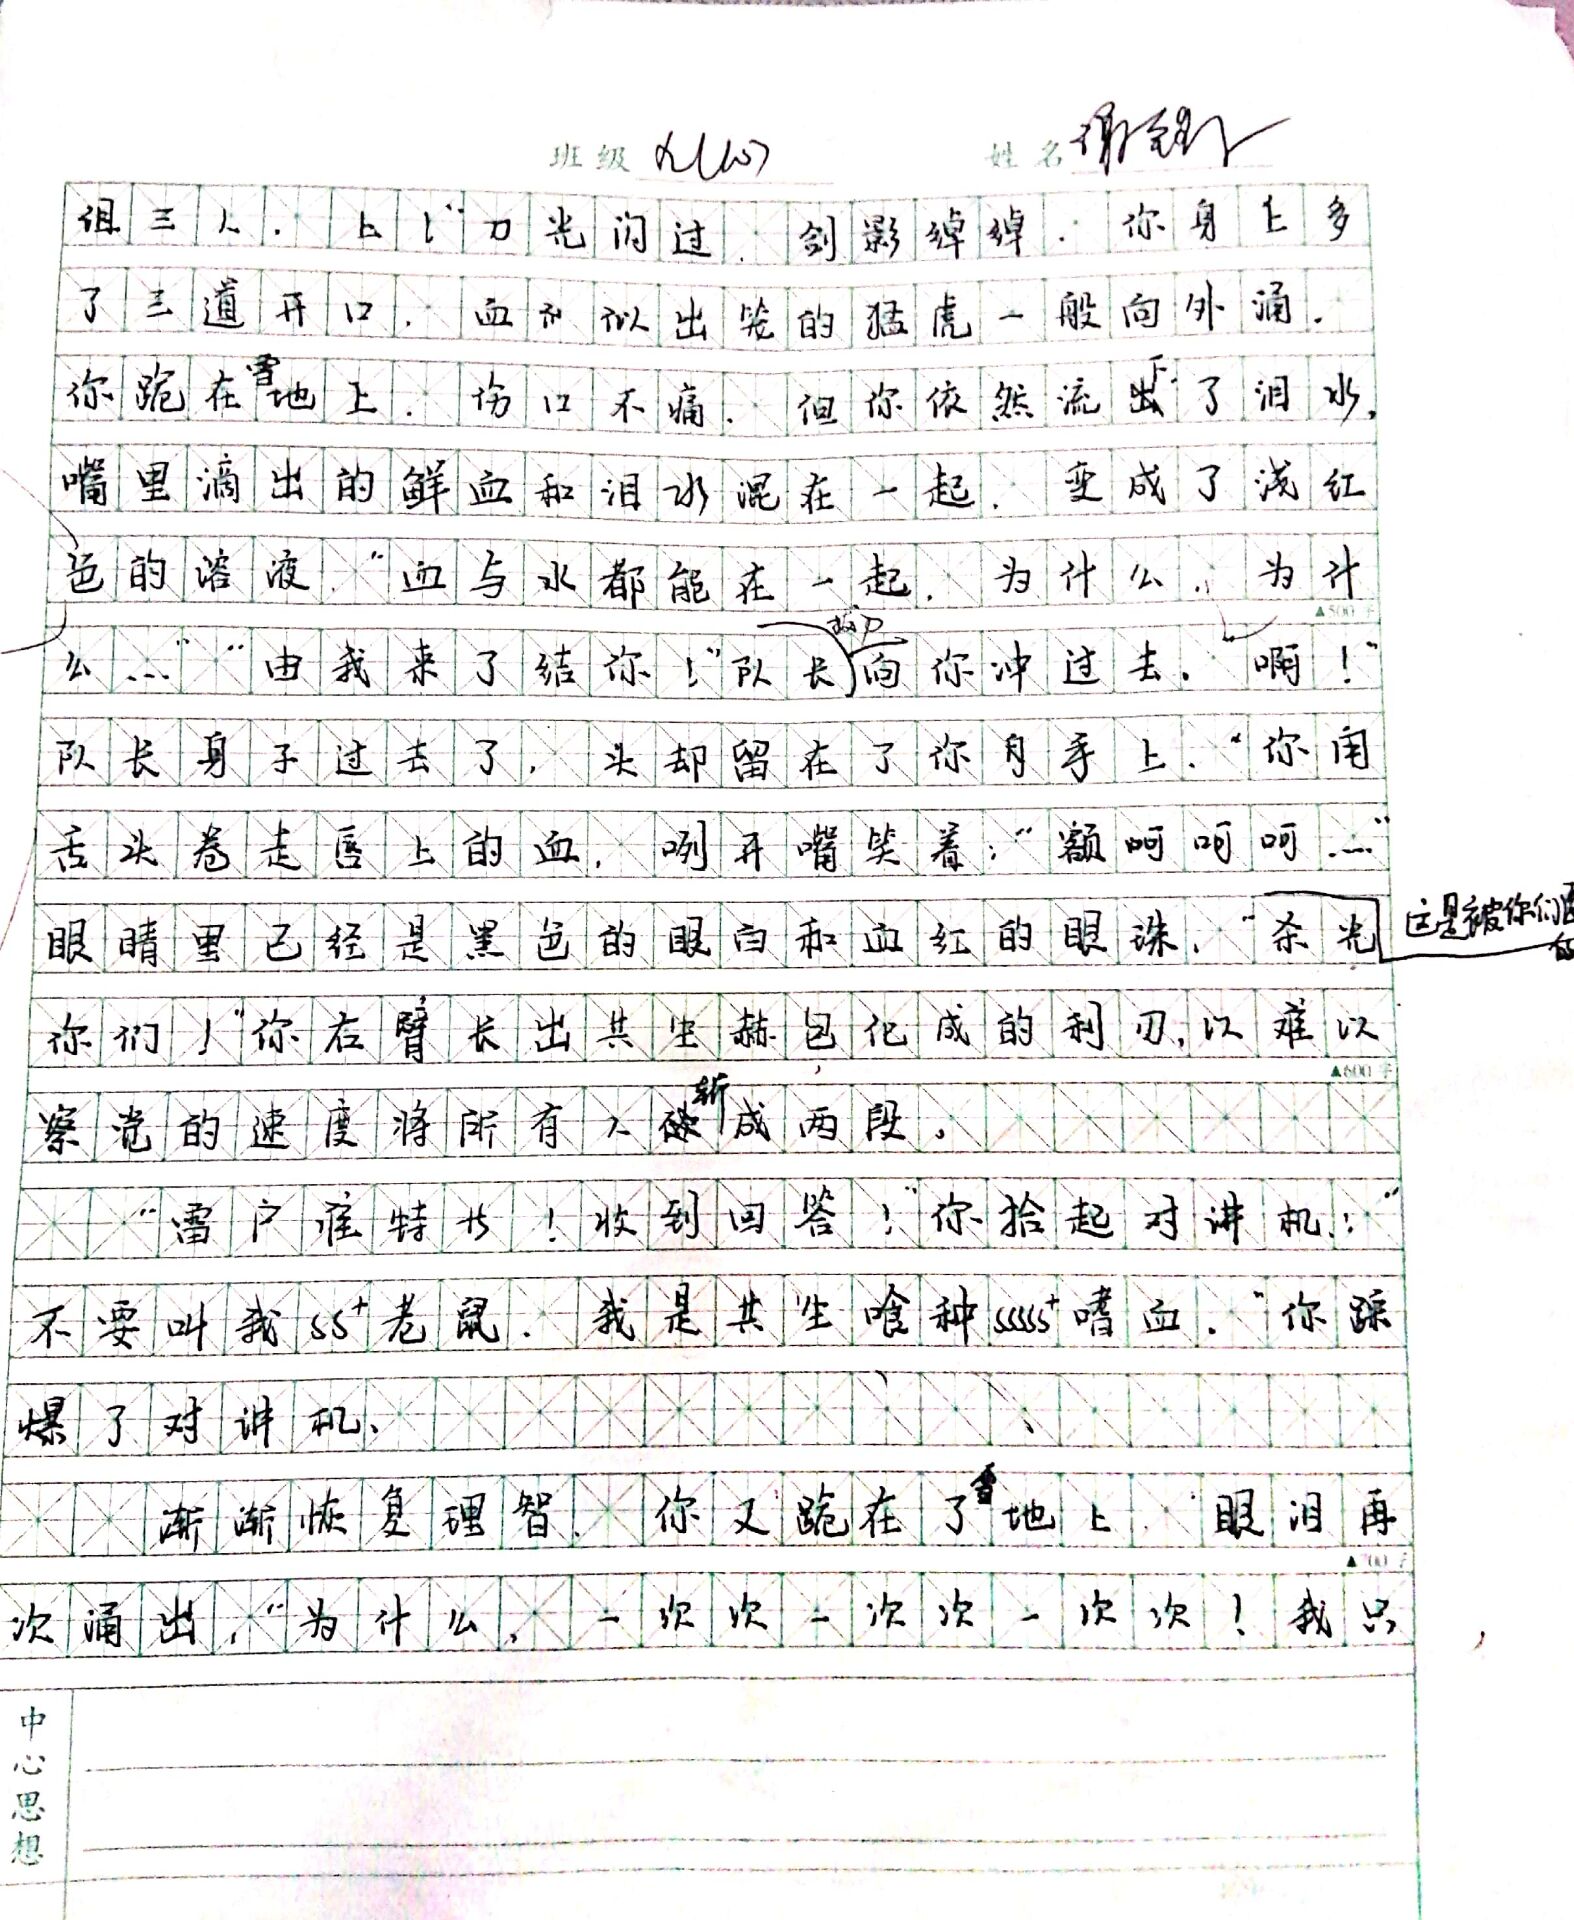 班级 九(10) 姓名
组三人,上!"刀光闪过,剑影绰绰.你身上多
了三道开口,血利似出笼的猛虎一般向外涌.
你跪在雪地上,伤口不痛,但你依然流下了泪水,
嘴里滴出的鲜血和泪水混在一起,变成了浅红
色的溶液,"血与水都能在一起,为什么,为什
▲500字
么……""由我来了结你!"队长拔刀向你冲过去."啊!"
队长身子过去了,头却留在了你月手上."你用
舌头卷走唇上的血,咧开嘴笑着:"额呵呵呵……"
眼睛里已经是黑色的眼白和血红的眼珠."杀光
这是被你们
你们!"你右臂长出共生赫包化成的利刃,以难以
▲600字
察觉的速度将所有人斩成两段,
"雷户准特书!收到回答!"你拾起对讲机:"
不要叫我SS+老鼠.我是共生喰种SSSSS+嗜血."你踩
爆了对讲机、
渐渐恢复理智,你又跪在了雪地上,眼泪再
▲700字
次涌出,"为什么,一次次一次次一次次!我只
中心思想